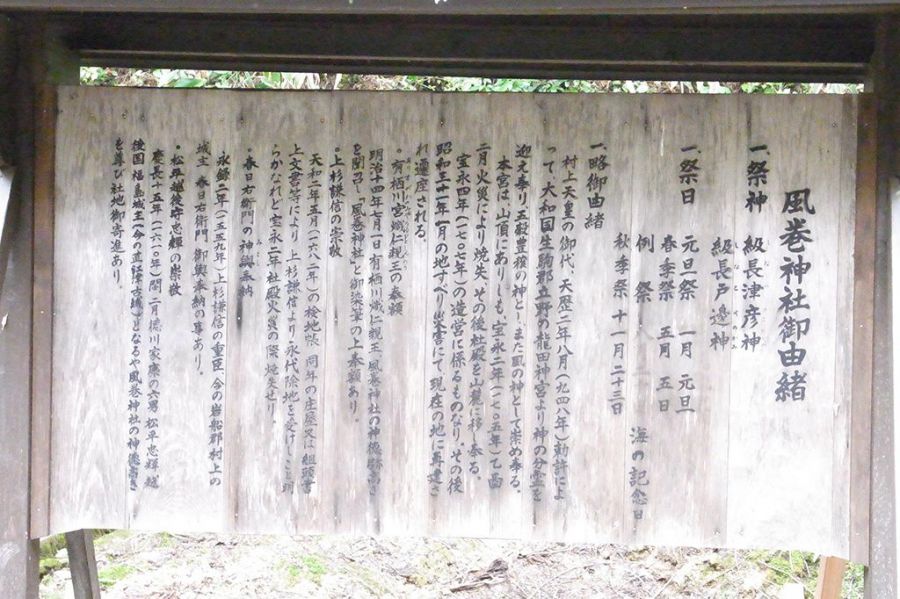 風巻神社御由緒
一、祭神 級長津彦神
級長戸邊神
一、祭日 元旦祭 一月 元旦
春季祭 五月 五日
例祭 海の記念日
秋季祭 十一月二十三日
一、略御由緒
村上天皇の御代、天歴二年八月(九四八年)勅許によ
って、大和国生駒郡立野の龍田神宮より神の分霊を
迎え奉り五穀豊穣の神としまた風の神として崇め奉る。
本宮は、山頂にありしも、宝永二年(一七〇五年)乙酉
二月火災により焼失、その後社殿を山麓に移し奉る。
宝永四年(一七〇七年)の造営に係るものなり、その後
昭和三十一年一月の地すべり災害にて、現在の地に再建さ
れ遷座される。
・有栖川宮熾仁親王の奉額
明治十四年七月一日有栖川熾仁親王「風巻神社の神徳跡高き
を聞召し「風巻神社」と御染筆の上奉額あり。
・上杉謙信の崇敬
天和二年五月(一六八二年)の検地帳、同年の庄屋又は組頭書
上文書等により、上杉謙信より、永代除地を受けしこと明
らかなれど宝永二年社殿火災の際、焼失せり。
・春日右衛門の神輿奉納
永録二年(一五五九年)上杉謙信の重臣、今の岩船郡村上の
城主、春日右衛門、御輿奉納の事あり。
・松平越後守忠輝の崇敬
慶長十五年(一六一〇年)閏二月徳川家康の六男、松平忠輝、越
後国福島城主(今の直江津古城)となるや風巻神社の神徳高き
を尊び社地御寄進あり。